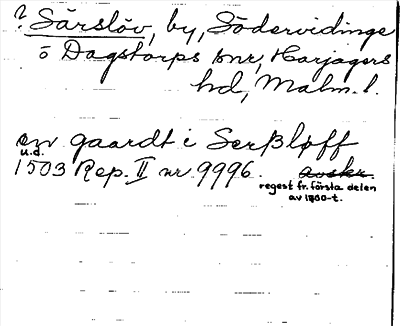 ? Särslöv, by, Södervidinge
o Dagstorps snr, Harjagers
hd, Malm. l.
en gaardt i Serβløff
u.d.
1503 Rep. II nr 9996. avskr.
regest fr. första delen
av 1700-t.